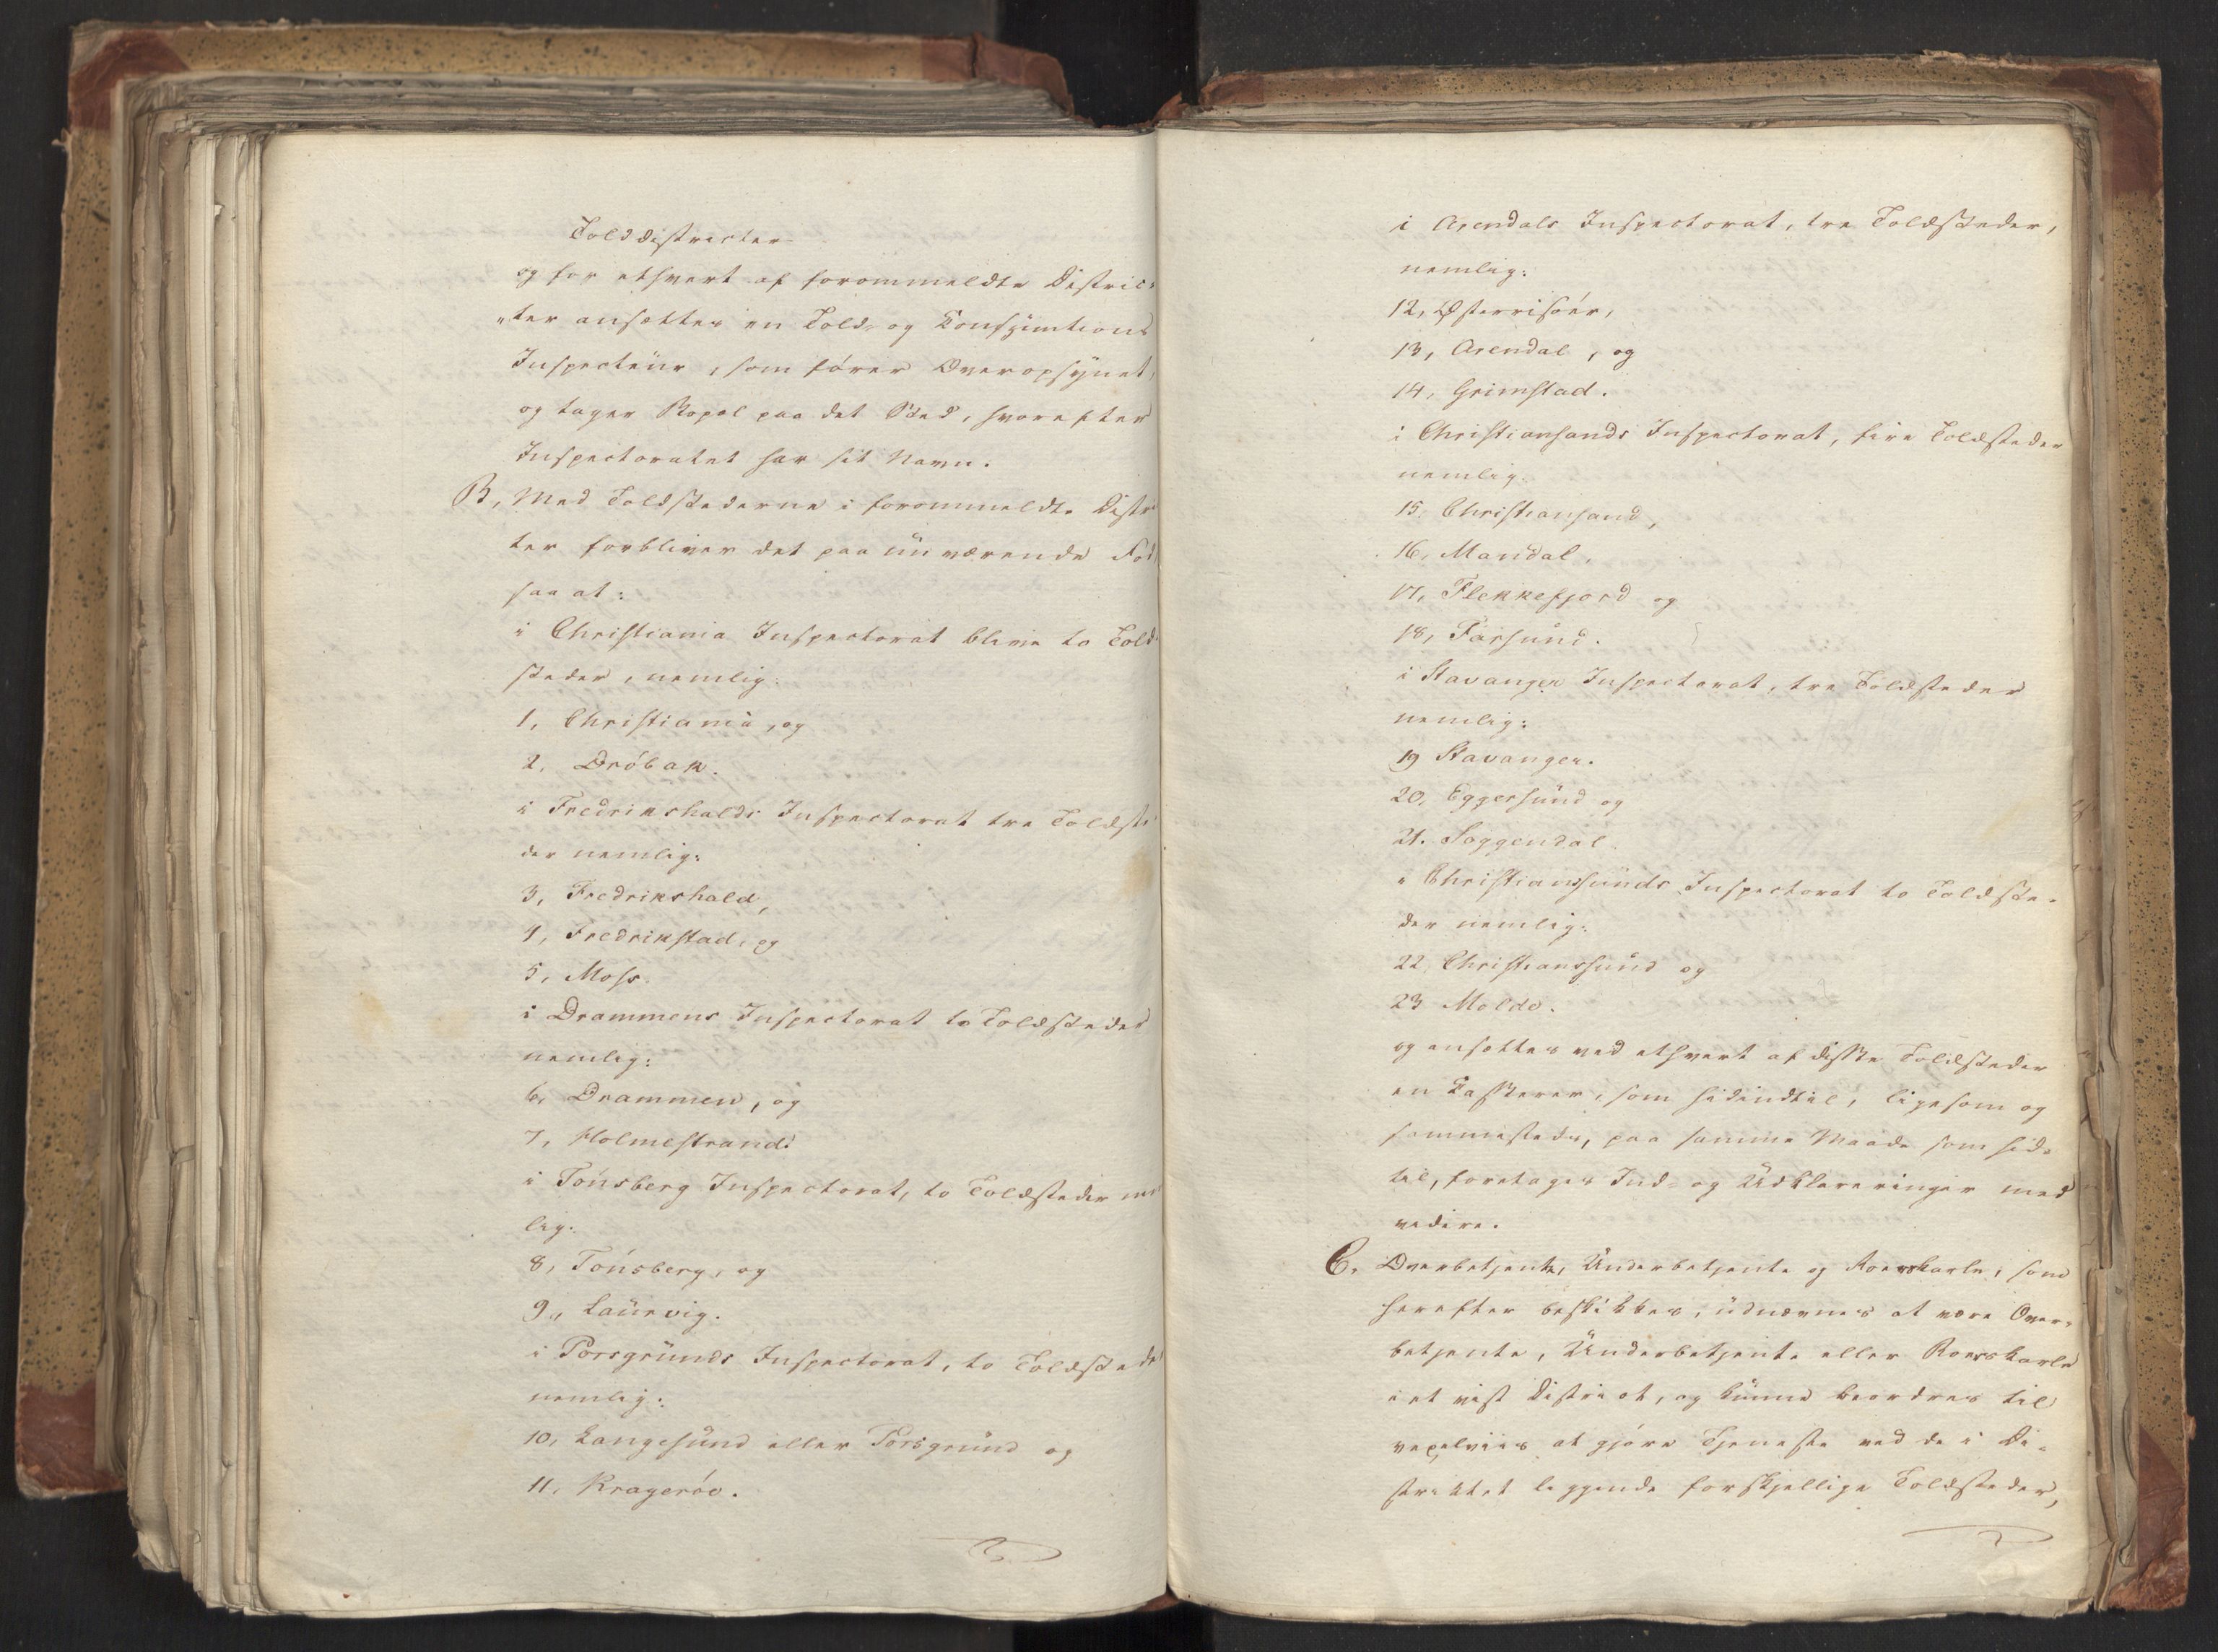 Tolddistricter
og for ethvert af forommeldte Distric-
"ter ansettes en Told- og Consumtions
Inspecteur, som fører Overopsynet,
og tager Bopæl paa det Sted, hvorefter
Inspectoratet har sit Navn.
B, Med Toldstederne i forommeldte Distr
ter forbliver det paa nu værende Fod
saa at:
i Christiania Inspectorat blive to Told
steder, nemlig:
1, Christiania, og
2, Dröbak.
i Fredrikshalds Inspectorat tre Toldste
der nemlig:
3, Fredrikshald,
4, Fredrikstad, og
5, Moss.
i Drammens Inspectorat to Toldsteder
nemlig:
6, Drammen, og
7, Holmestrand.
i Tönsberg Inspectorat, to Toldsteder nem
lig:
8, Tönsberg, og
9, Laurvig.
i Porsgrunds Inspectorat, to Toldsteder
nemlig:
10, Langesund eller Porsgrund og
11, Kragerøe.
i Arendals Inspectorat, tre Toldsteder,
nemlig:
12, Østerrisöer,
13, Arendal, og
14, Grimstad.
i Christiansands Inspectorat, fire Toldsteder
nemlig:
15, Christiansand,
16, Mandal,
17, Flekkefjord og
18, Farsund.
i Stavanger Inspectorat, tre Toldsteder
nemlig:
19 Stavanger.
20, Eggersund og
21. Soggendal.
i Christianssunds Inspectorat to Toldste-
der nemlig:
22, Christianssund og
23 Molde.
og ansettes ved ethvert af disse Toldsteder
en Casserer, som hidindtil, ligesom og
sammesteds, paa samme Maade som hid-
til, foretages Ind- og Udklareringer med
videre.
C. Overbetjente, Underbetjente og Roerskarle, som
herefter beskikkes, udnævnes at være Over-
betjente, Underbetjente eller Roerskarle
i et vist District, og kunne beordres til
vexelviis at gjøre Tjeneste ved de i Di-
striktet liggende forskjellige Toldsteder,